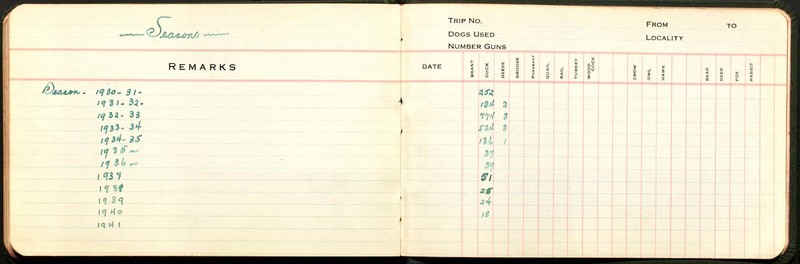 Seasons
REMARKS
Season - 1930-31-
1931-32-
1932-33
1933-34
1934-35
1935 -
1936 -
1937
1938
1939
1940
1941
TRIP NO. FROM TO
DOGS USED LOCALITY
NUMBER GUNS
DATE BRANT DUCK GEESE GROUSE PHEASANT QUAIL RAIL TURKEY WOODCOCK CROW OWL HAWK BEAR DEER FOX RABBIT
252
184 2
774 3
524 3
136 1
37
39
51
24
18